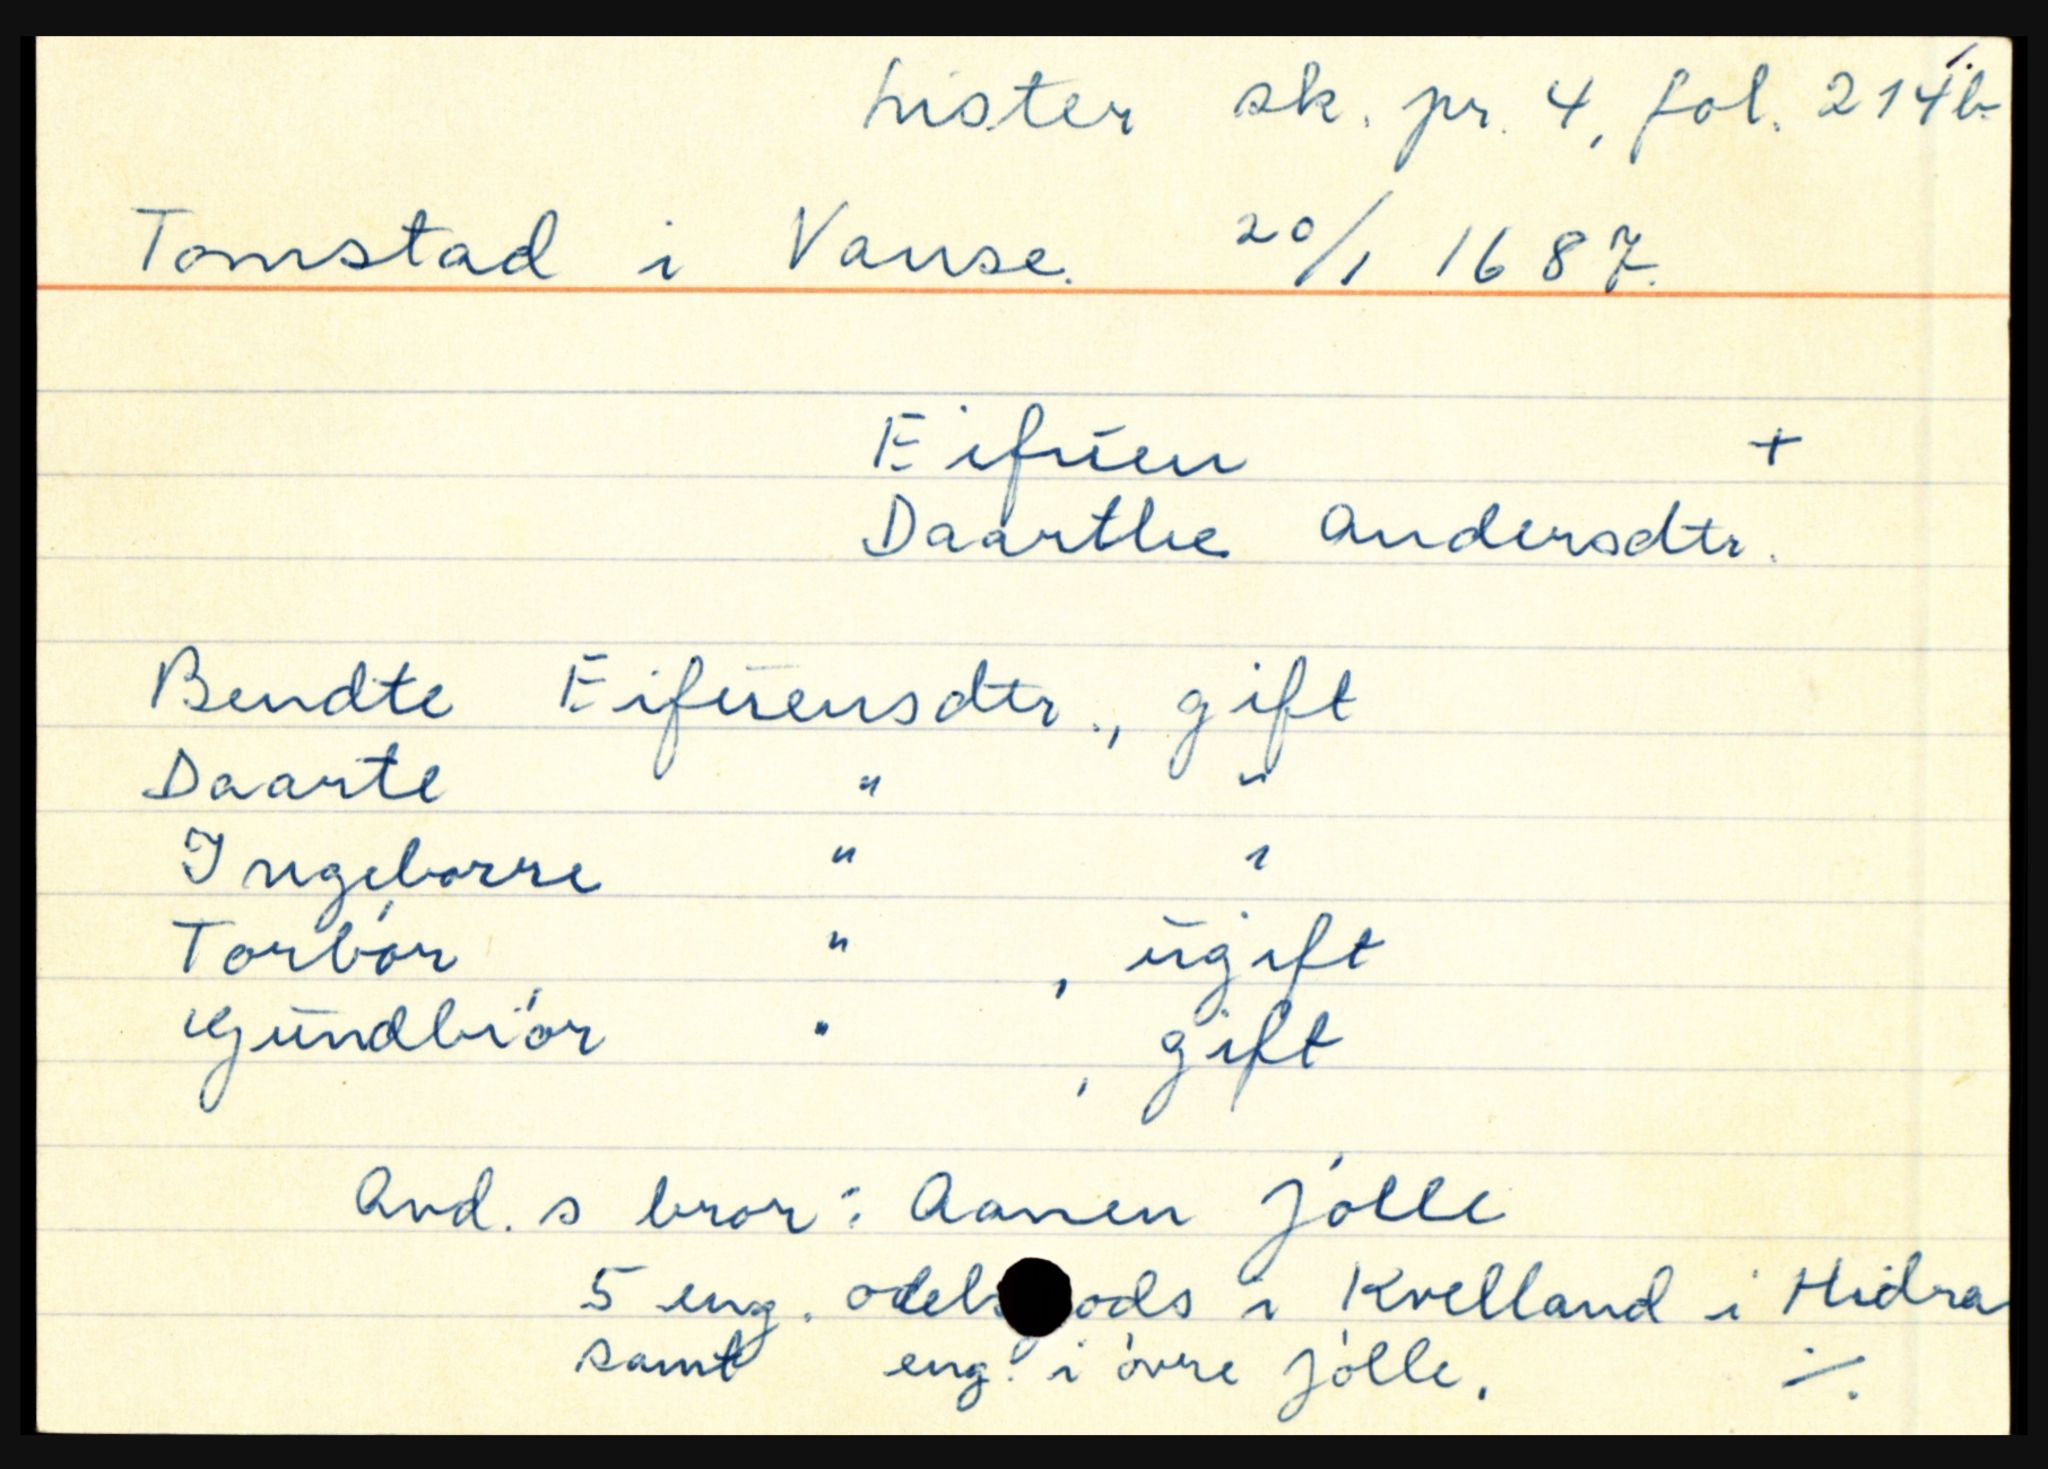 Lister sk. pr. 4, fol. 214b
Tomstad i Vanse. 20/1 1687.
Eifuen +
Daarthe Andersdtr.
Bendte Eifuensdtr., gift
Daarte " "
Ingeborre " "
Torbór " , ugift
Gundbiór " , gift
Avd. s bror: Aanen Jólle
5 eng. odels ods i Kvelland i Hidra
samt eng. i óvre Jólle. ./.